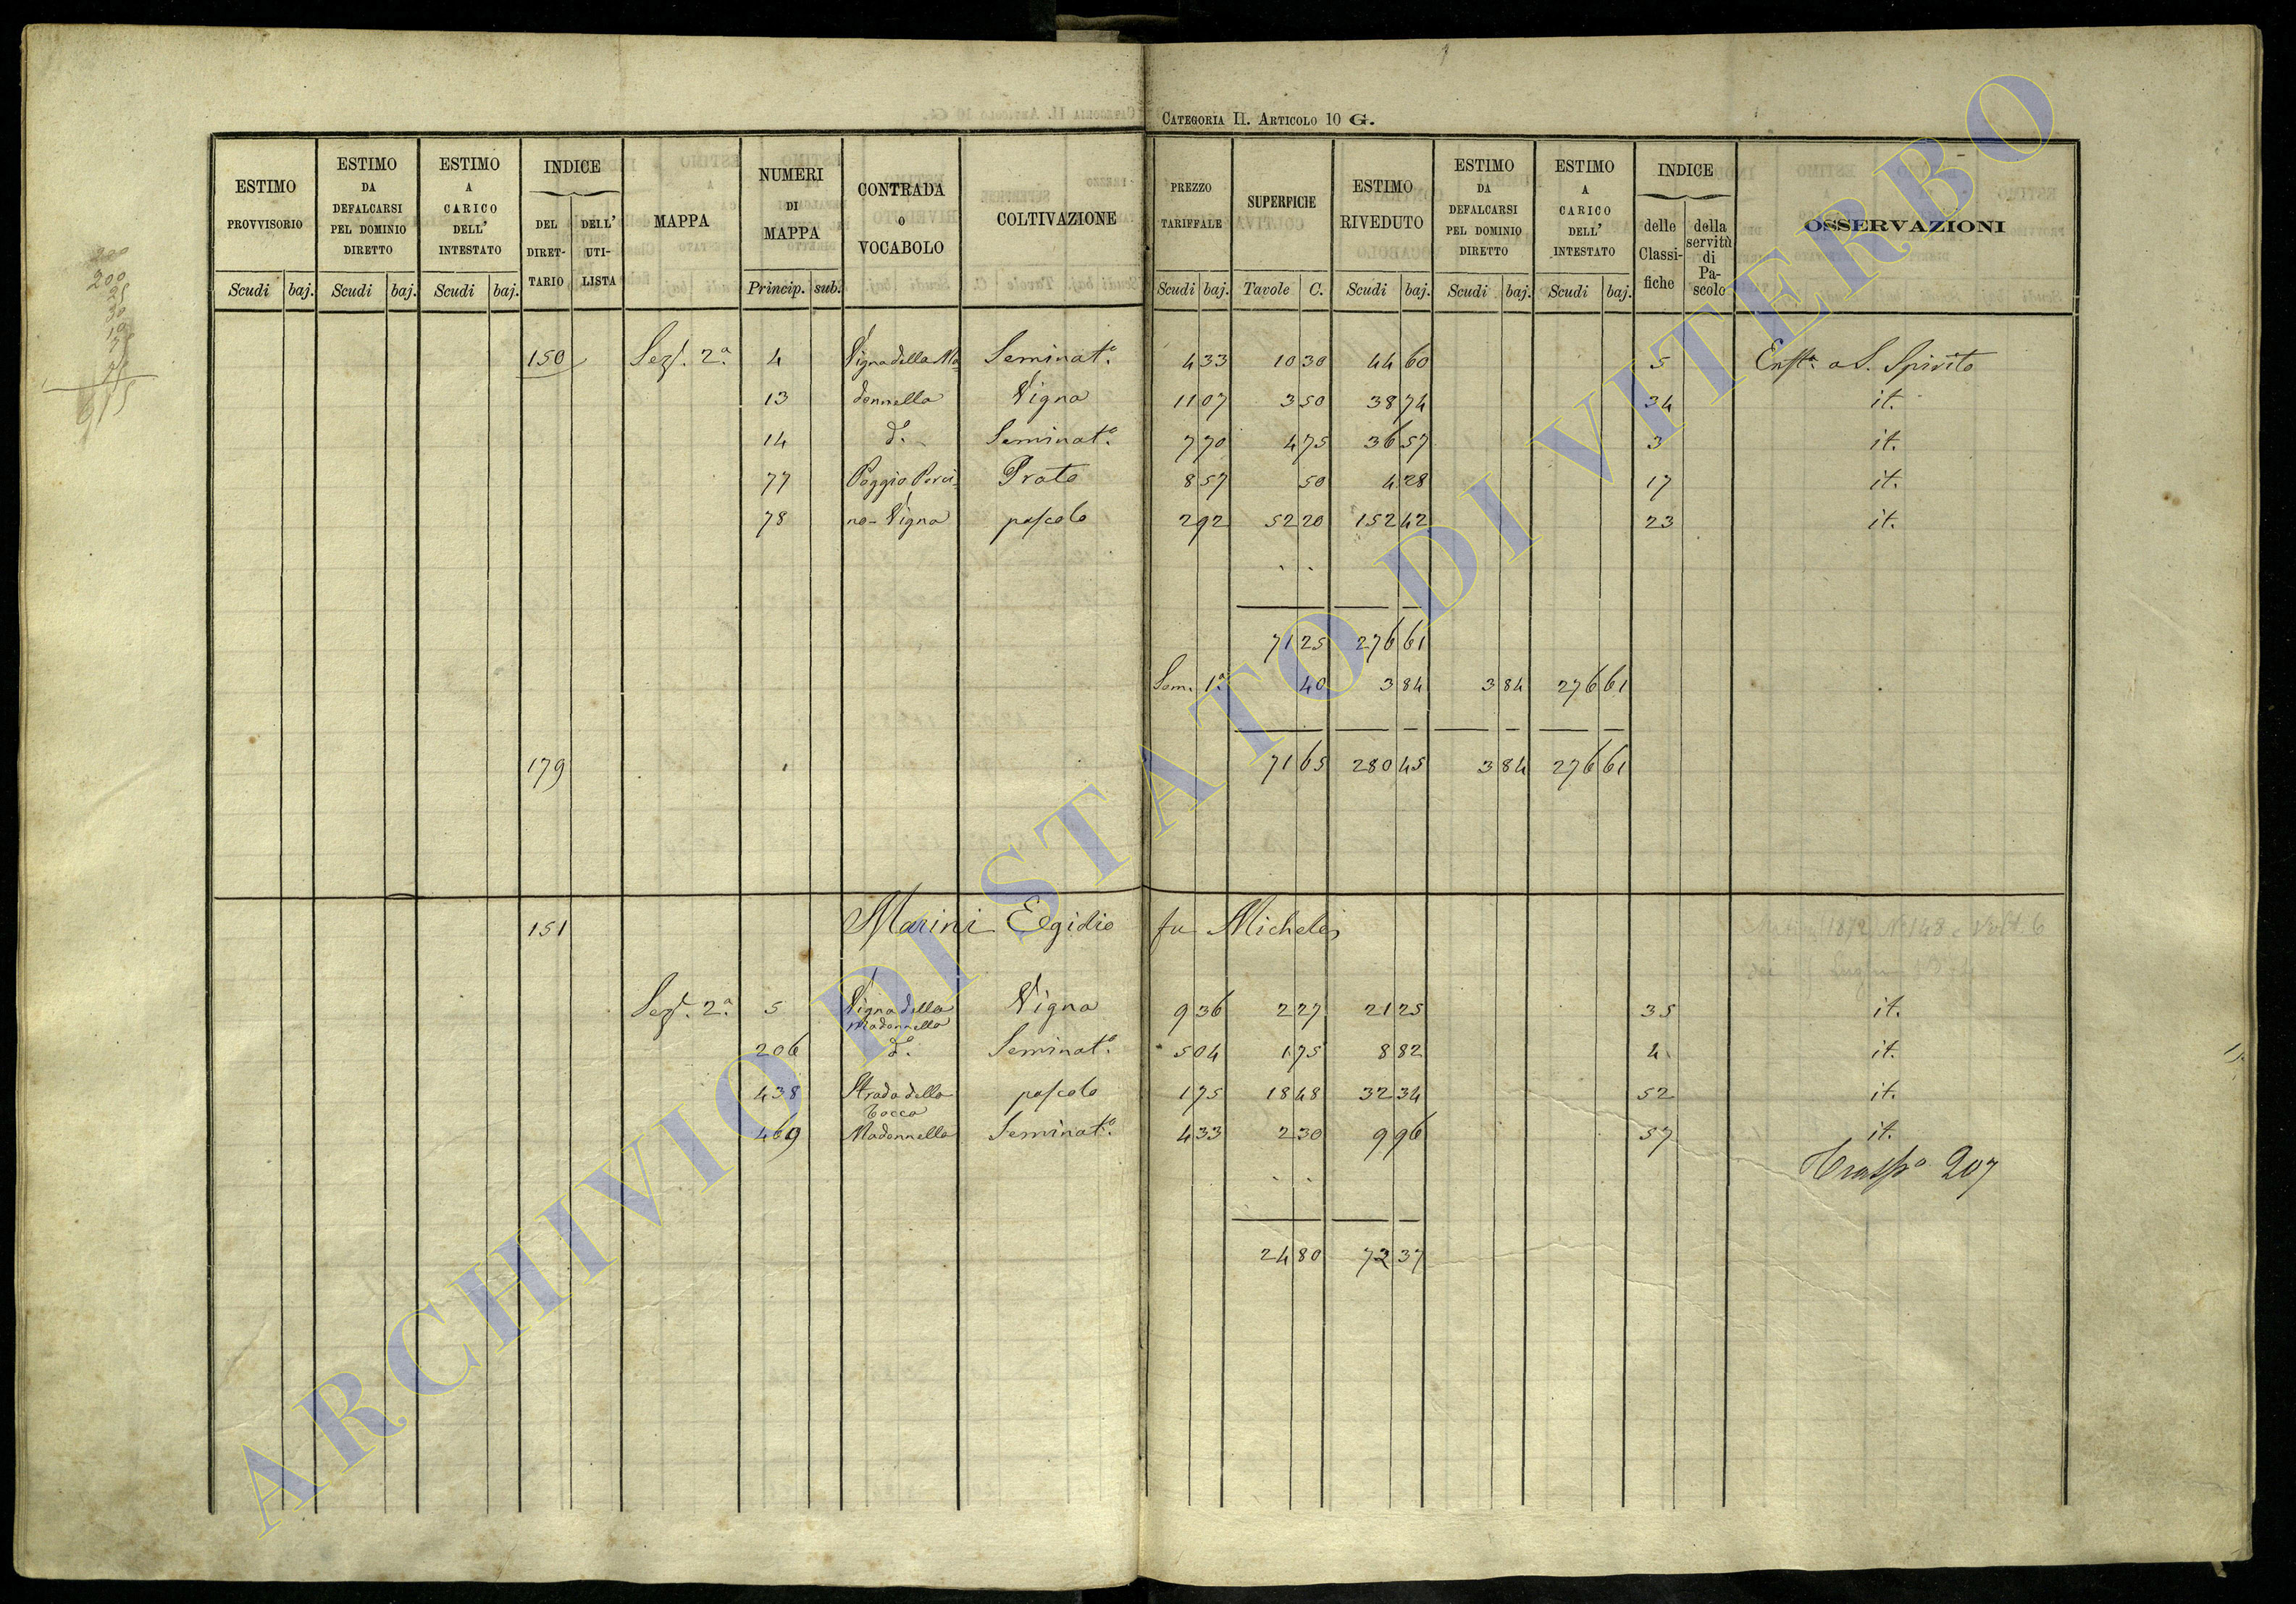 CATEGORIA II. ARTICOLO 10 G.
ESTIMO PROVVISORIO | ESTIMO DA DEFALCARSI PEL DOMINIO DIRETTO | ESTIMO A CARICO DELL' INTESTATO | INDICE DEL DIRET-TARIO | DELL' UTI-LISTA | MAPPA | NUMERI DI MAPPA | CONTRADA O VOCABOLO | COLTIVAZIONE | PREZZO TARIFFALE | SUPERFICIE | ESTIMO RIVEDUTO | ESTIMO DA DEFALCARSI PEL DOMINIO DIRETTO | ESTIMO A CARICO DELL' INTESTATO | INDICE delle Classi-fiche | della servitù di Pa-scolo | OSSERVAZIONI
Scudi | baj. | Scudi | baj. | Scudi | baj. | Princip. | sub. | Scudi | baj. | Tavole | C. | Scudi | baj. | Scudi | baj. | Scudi | baj.
150 Sez. 2a 4 Vigna della Ma- Seminat.o 4 33 10 30 44 60 5 Enfta. a S. Spirito
13 donnella Vigna 11 07 3 50 38 74 34 it.
14 d.o Seminat.o 7 70 4 75 36 57 3 it.
77 Poggio Porci- Prato 8 57 50 4 28 17 it.
78 no - Vigna pascolo 2 92 52 20 152 42 23 it.
71 25 276 61
Som. 1a. 40 3 84 3 84 276 61
179 71 65 280 45 3 84 276 61
151 Marini Egidio fu Michele
Sez. 2a 5 Vigna della Madonnella Vigna 9 36 2 27 21 25 35 it.
206 d.o Seminat.o 5 04 1 75 8 82 4 it.
438 Strada della Cocca pascolo 1 75 18 48 32 34 52 it.
469 Madonnella Seminat.o 4 33 2 30 9 96 57 it.
Trasp.o 207
24 80 72 37
ARCHIVIO DI STATO DI VITERBO